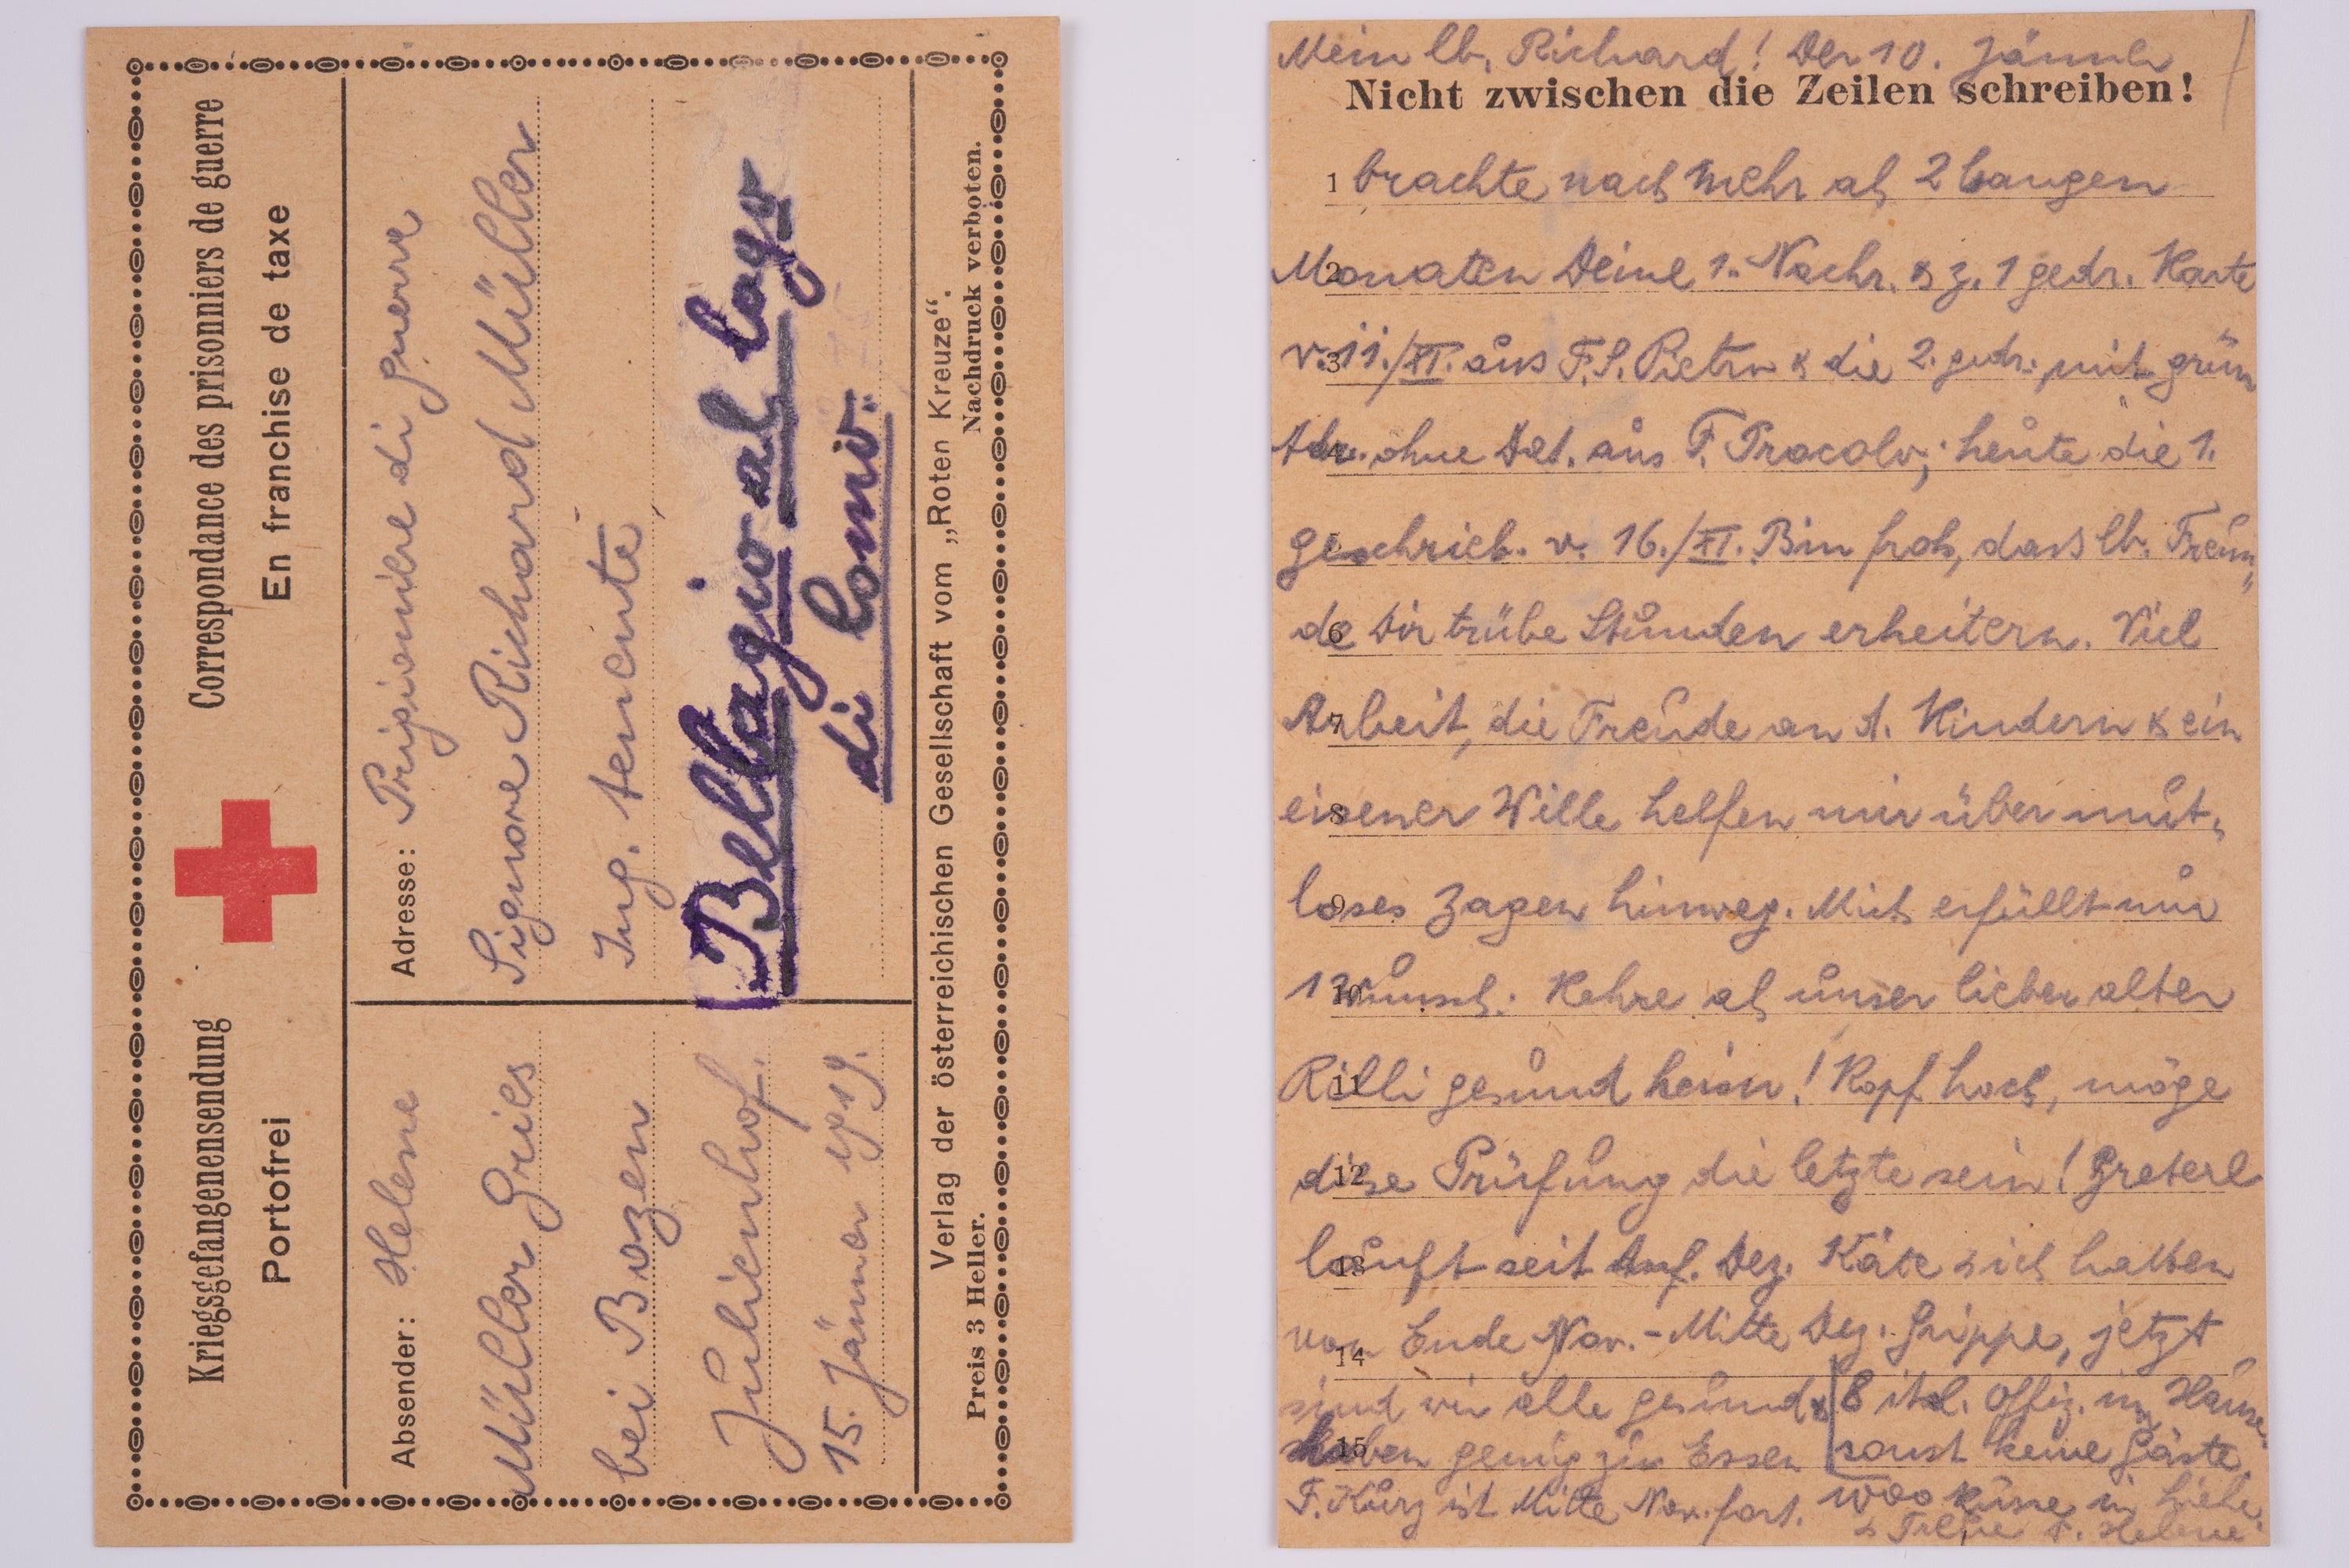 Kriegsgefangenensendung
Correspondance des prisonniers de guerre
Portofrei
En franchise de taxe
Absender: Helene
Müller Gries
bei Bozen
Julienhof.
15. Jänner 1919.
Adresse: Prigioniere di guerra
Signore Richard Müller
Ing. tenente
Bellagio al lago
di Como.
Verlag der österreichischen Gesellschaft vom „Roten Kreuze“.
Preis 3 Heller.
Nachdruck verboten.
Mein lb. Richard! Der 10. Jänner
Nicht zwischen die Zeilen schreiben!
1 brachte nach mehr als 2 bangen
2 Monaten Deine 1. Nachr. & z. 1 gedr. Karte
3 v. 11./XI. aus F. S. Pietro & die 2. gedr. mit grün
Adr. ohne Dat. aus F. Procolo; heute die 1.
geschrieb. v. 16./XI. Bin froh, dass lb. Freun„
6 de Dir trübe Stunden erheitern. Viel
7 Arbeit, die Freude an d. Kindern & ein
8 eisener Wille helfen mir über mut„
9 loses Zagen hinweg. Mich erfüllt nur
10 1 Wunsch: Kehre als unser lieber alter
11 Rilli gesund heim! Kopf hoch, möge
12 diese Prüfung die letzte sein! Greterl
13 läuft seit Anf. Dez. Käte & ich hatten
14 von Ende Nov. - Mitte Dez. Grippe, jetzt
sind wir alle gesund & 8 ital. Offiz. im Hause
15 haben genug zu Essen sonst keine Gäste.
F. Kurz ist Mitte Nov. fort. 1000 Küsse in Liebe
& Treue D. Helene